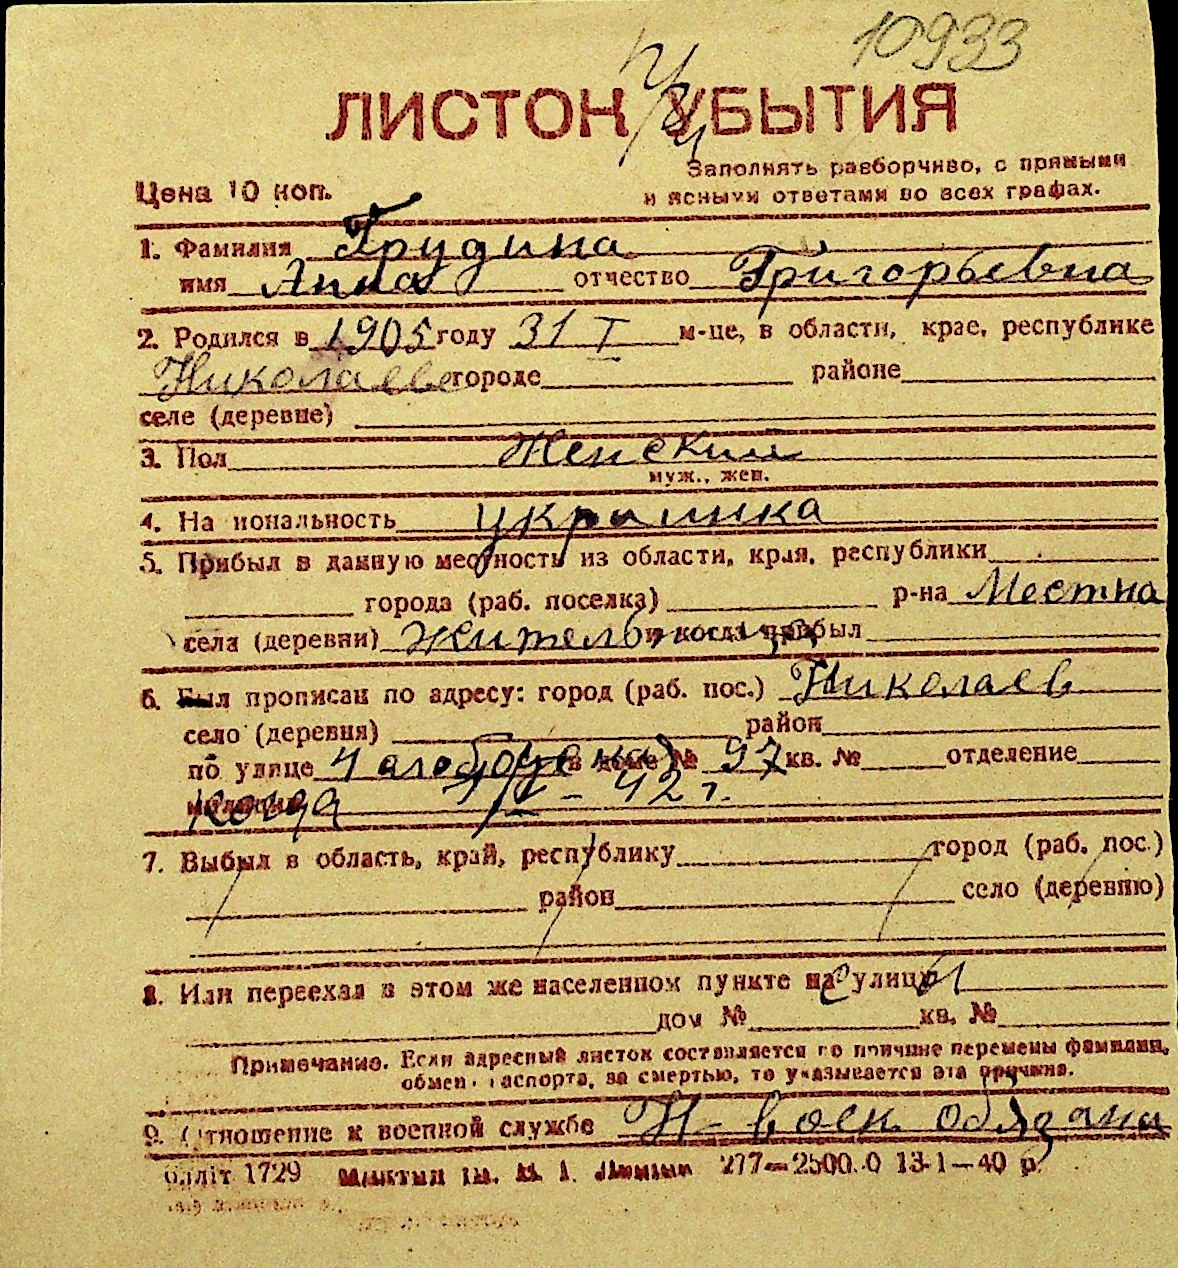 10933
ЛИСТОК УБЫТИЯ
Заполнять разборчиво, с прямыми
Цена 10 коп.
и ясными ответами во всех графах.
1. Фамилия Грудина
имя Анна отчество Григорьевна
2. Родился в 1905 году 31 I м-це, в области, крае, республике
Николаеве городе районе
селе (деревне)
3. Пол Женский
муж., жен.
4. На иональность украинка
5. Прибыл в данную местность из области, края, республики
города (раб. поселка) р-на Местна
села (деревни) жительница и когда прибыл
6. Был прописан по адресу: город (раб. пос.) Николаев
село (деревня) район
по улице 4 слободская в доме № 97 кв. № отделение
когда 42 г.
7. Выбыл в область, край, республику город (раб. пос.)
район село (деревню)
8. Или переехал в этом же населенном пункте на улицу
дом № кв. №
Примечание. Если адресный листок составляется по причине перемены фамилии,
обмен паспорта, за смертью, то указывается эта причина.
9. Отношение к военной службе Н-воен обязана
1729 277—2500.0 13-1—40 р.